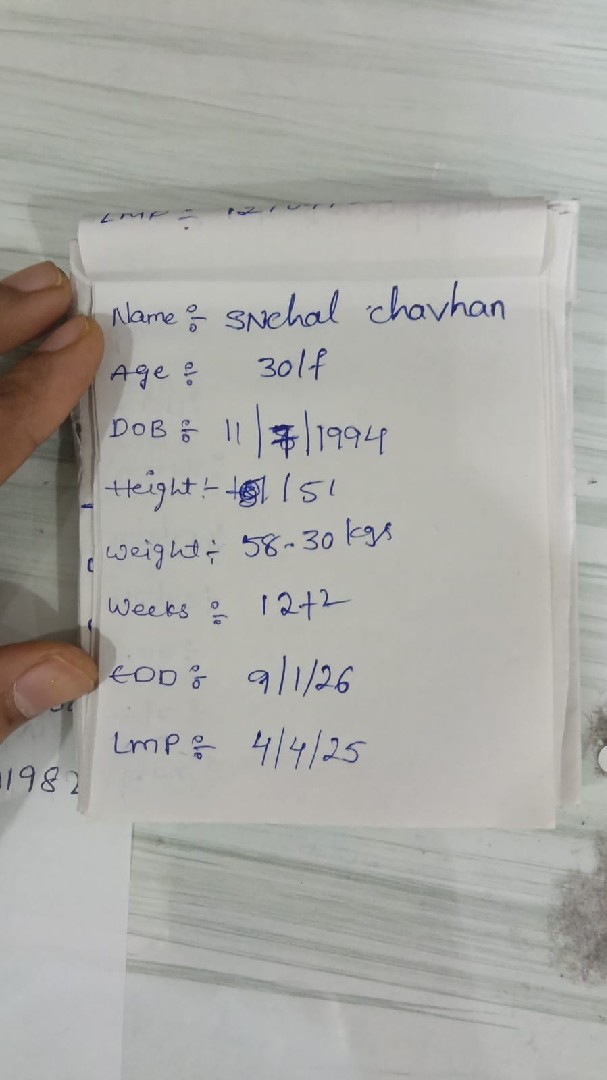 Name ÷ SNehal chavhan
Age ÷ 30/f
DOB ÷ 11/7/1994
Height :- 151
Weight ÷ 58.30 kgs
Weeks ÷ 12+2
EDD ÷ 9/1/26
LMP ÷ 4/4/25
1982